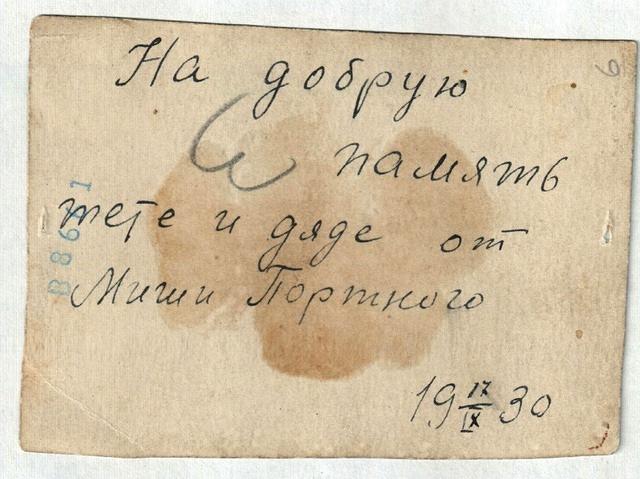 На добрую
память
тете и дяде от
Миши Портного
19 17/IX 30